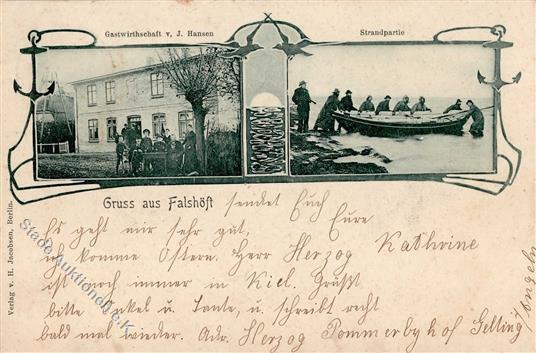 Gastwirthschaft v. J. Hansen
Strandpartie
Gruss aus Falshöft sendet Euch Eure
Kathrine
Es geht mir sehr gut,
ich komme Ostern. Herr Herzog
ist noch immer in Kiel. Grüßt
bitte Onkel u. Tante, u. schreibt recht
bald mal wieder. Adr. Herzog Pommerbyhof Gelting
Angeln
Verlag v. H. Jacobsen, Berlin.
Stade Auktionen e.K.